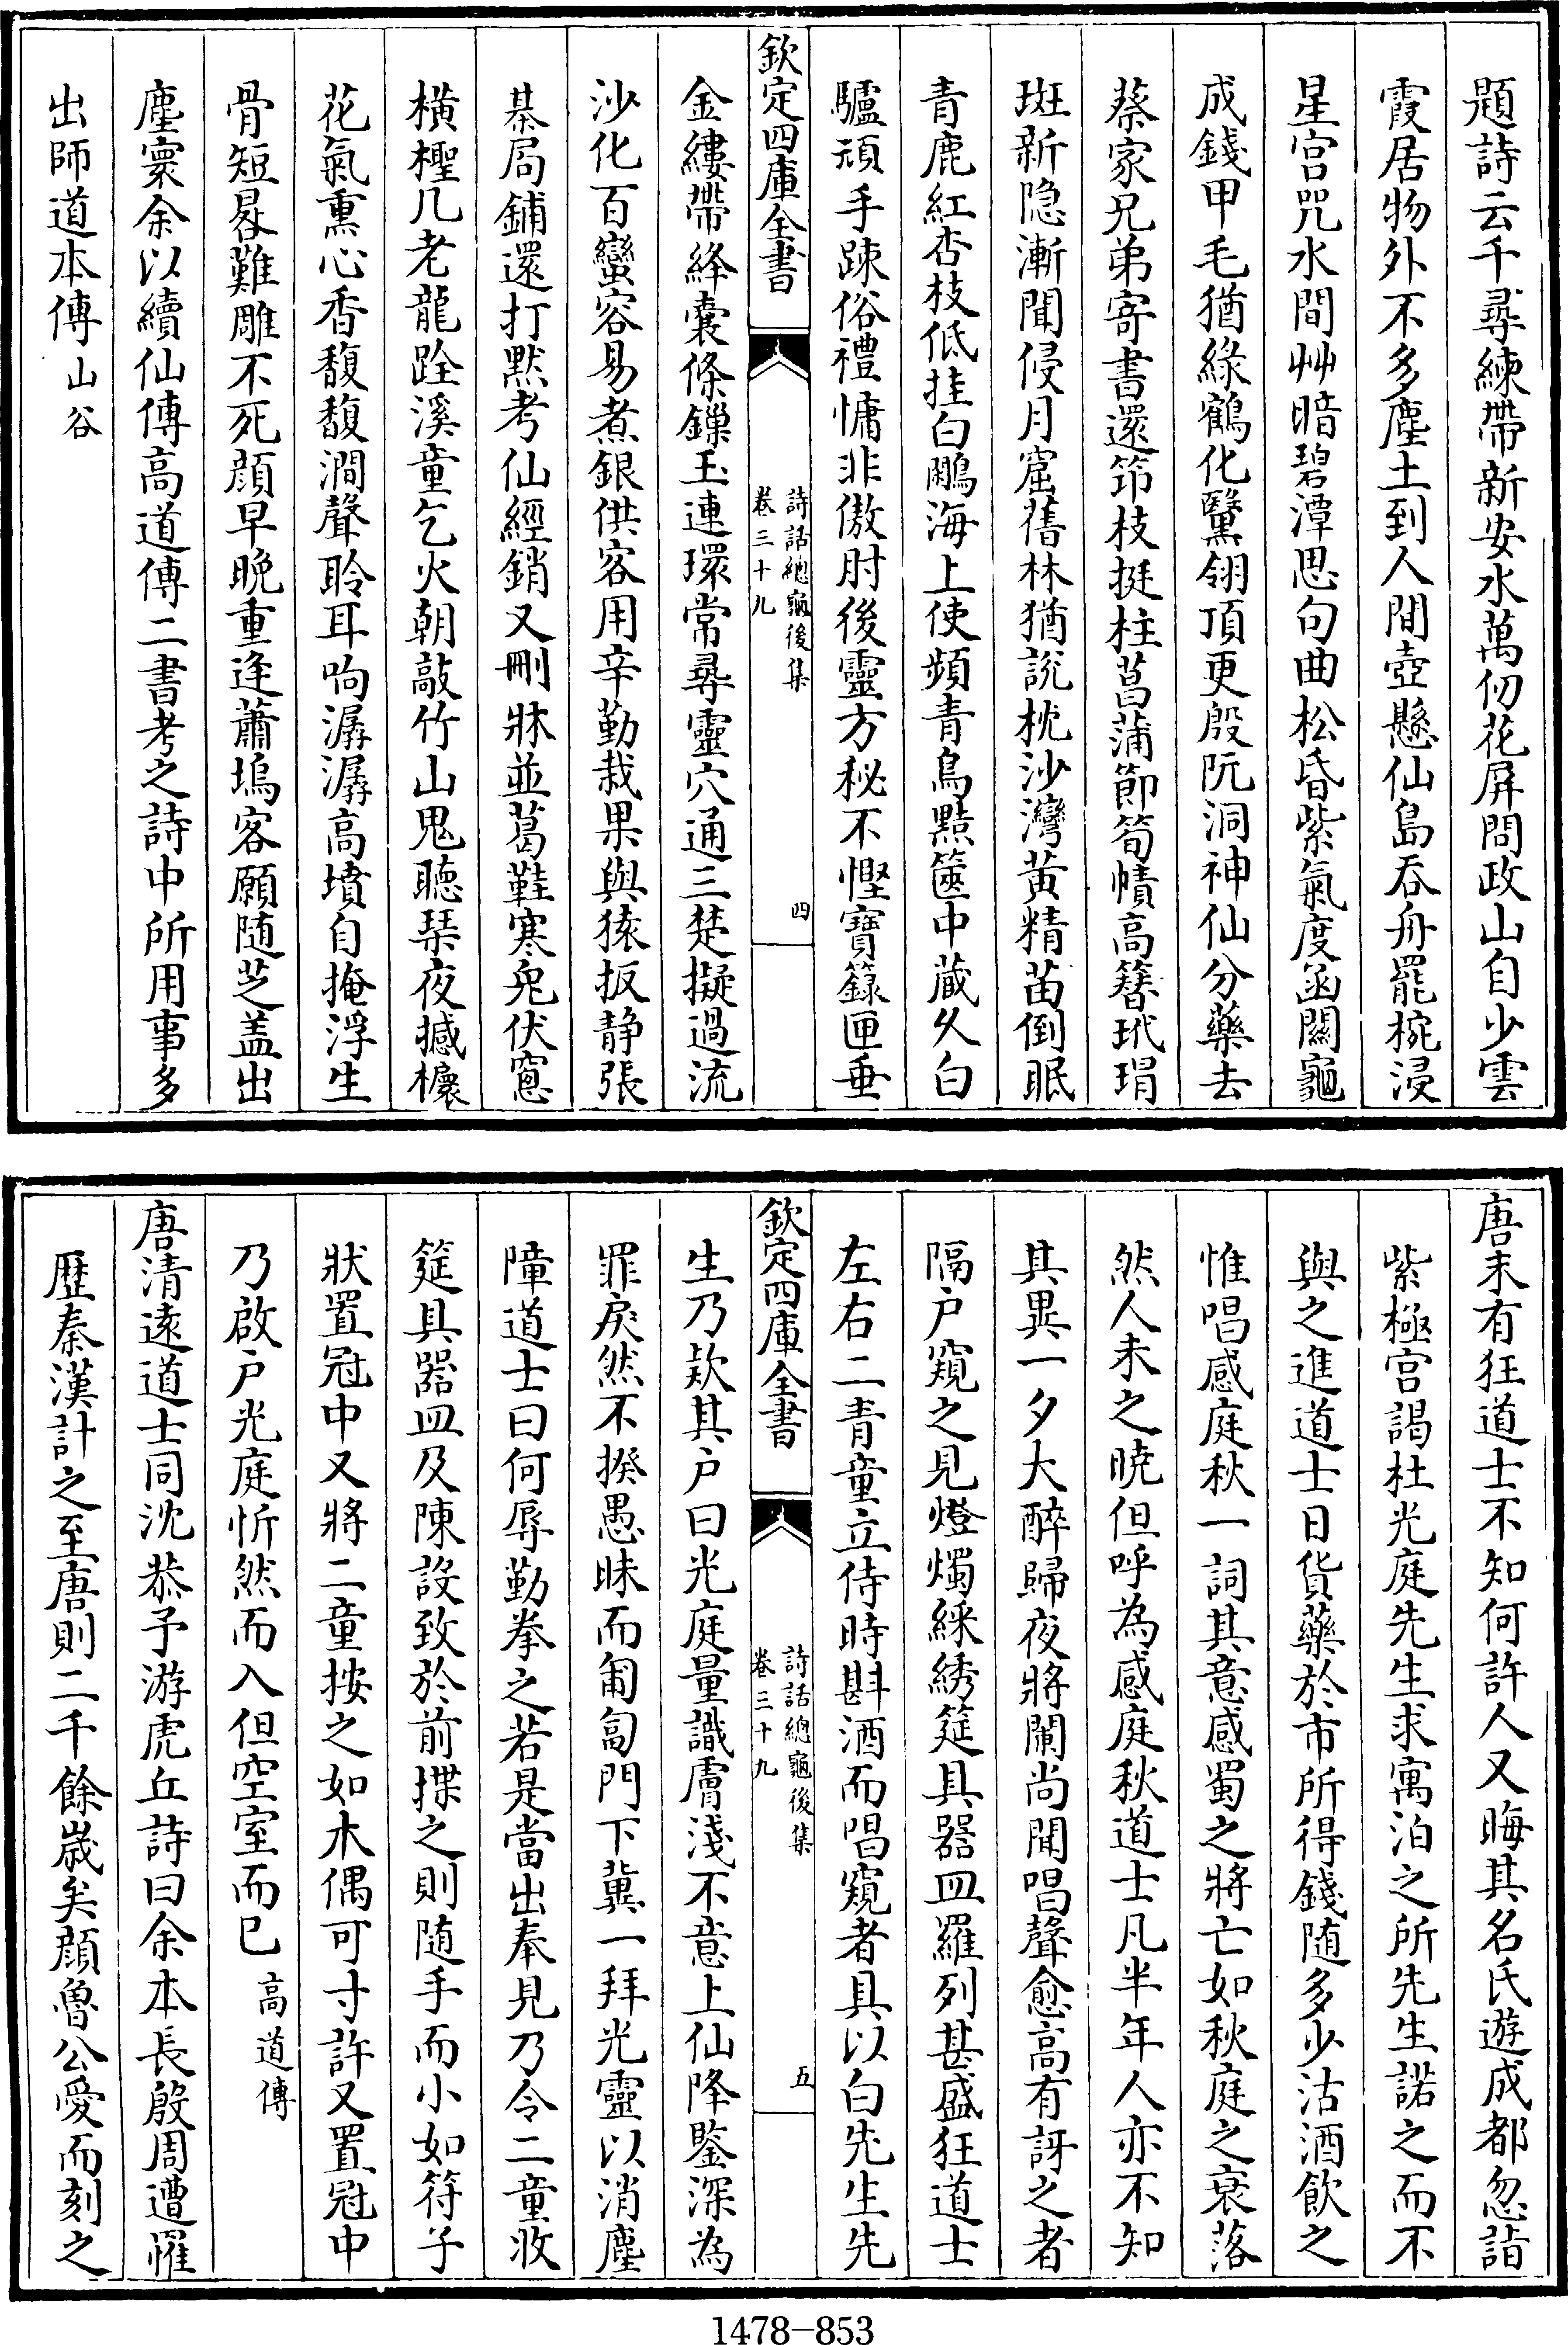 題詩云千尋練帶新安水萬仞花屏問政山自少雲
霞居物外不多塵土到人間壺懸仙島吞舟罷椀浸
星宫咒水間艸暗碧潭思句曲松昏紫氣度函關龜
成錢甲毛猶綠鶴化鷖翎頂更殷阮洞神仙分藥去
蔡家兄弟寄書還笻枝挺柱菖蒲節筍幘高簪玳瑁
斑新隐漸聞侵月窟舊林猶説枕沙灣黄精苗倒眠
青鹿紅杏枝低挂白鷳海上使頻青鳥黠篋中蔵久白
驢頑手疎俗禮慵非傲肘後靈方秘不慳寶籙匣垂
欽定四庫全書
詩話總龜後集
卷三十九
四
金縷帶絳囊條鏁玉連環常尋靈穴通三楚擬過流
沙化百蠻容易煮銀供客用辛勤栽果與猿扳静張
棊局鋪還打默考仙經銷又刪牀並葛鞋寒兔伏窓
横檉几老龍跧溪童乞火朝敲竹山鬼聴琹夜撼欀
花氣熏心香馥馥澗聲聆耳响潺潺高墳自掩浮生
骨短晷難雕不死顔早晚重逢蕭塢客願随芝盖出
塵寰余以續仙傳高道傳二書考之詩中所用事多
出師道本傳山谷
唐末有狂道士不知何許人又晦其名氏遊成都忽詣
紫極宫謁杜光庭先生求寓泊之所先生諾之而不
與之進道士日貨藥於市所得錢随多少沽酒飲之
惟唱感庭秋一詞其意感蜀之將亡如秋庭之衰落
然人未之曉但呼為感庭秋道士凡半年人亦不知
其異一夕大醉歸夜將闌尚聞唱聲愈高有訝之者
隔户窺之見燈燭綵綉筵具器皿羅列甚盛狂道士
左右二青童立侍時斟酒而唱窺者具以白先生先
欽定四庫全書
詩話總龜後集
卷三十九
五
生乃欵其户曰光庭量識膚淺不意上仙降鑒深為
罪戾然不揆愚昧而匍匐門下冀一拜光靈以消塵
障道士曰何辱勤拳之若是當出奉見乃令二童收
筵具器皿及陳設致於前揲之則随手而小如符子
狀置冠中又將二童按之如木偶可寸許又置冠中
乃啟户光庭忻然而入但空室而已高道傳
唐清遠道士同沈恭予游虎丘詩曰余本長殷周遭罹
歷秦漢計之至唐則二千餘嵗矣顔魯公愛而刻之
1478-853